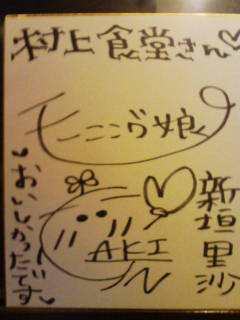 村上食堂さん♡
モーニング娘
新垣里沙
AKI
♥おいしかったです♥